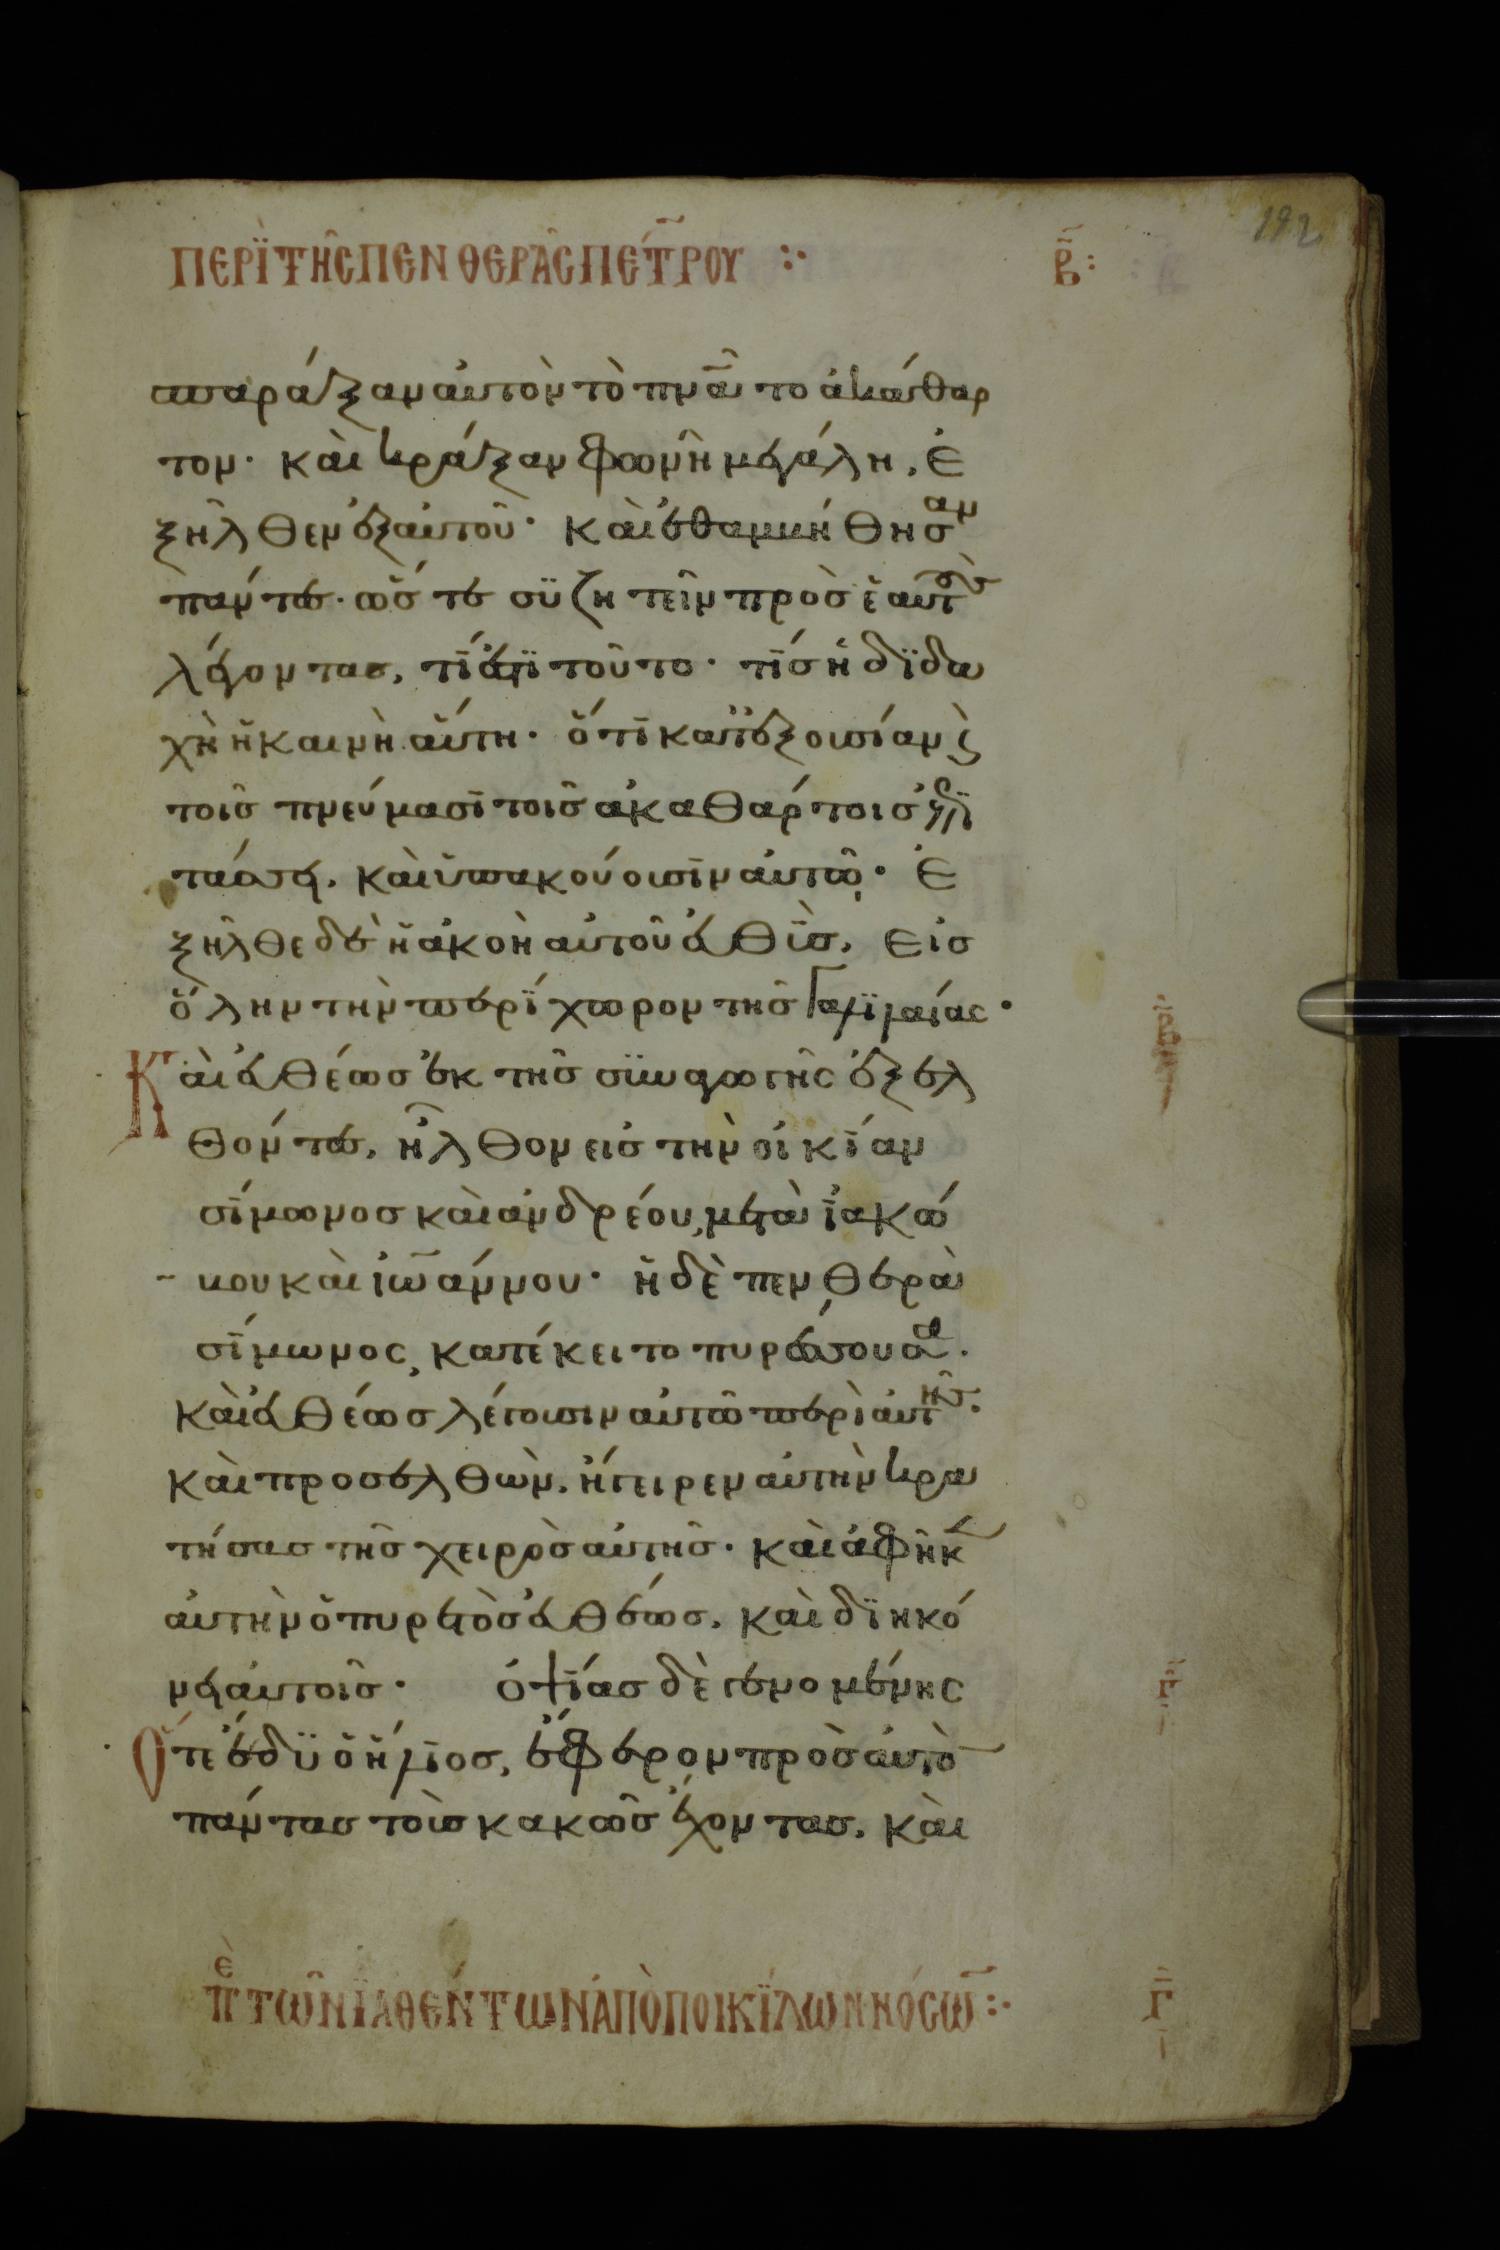 ΠΕΡῚ ΤΗ͂Σ ΠΕΝΘΕΡΑ͂Σ ΠΕΤΡΟΥ :· Β̄ :
192
σπαράξαν αὐτὸν τὸ πνᾶ το ἀκάθαρ
τον· καὶ κράξαν φωνῆ μεγάλη, ἐ
ξῆλθεν ἐξ αὐτοῦ· καὶ ἐθαμβήθησαν
πάντες· ὥστε συζητεῖν πρὸς ἑαυτοὺς
λέγοντας, τί ἐστι τοῦτο· τίς ἡ διδα
χὴ ἡ καινὴ αὕτη· ὅτι κατ' ἐξουσίαν ϛ
τοῖς πνεύμασι τοῖς ἀκαθάρτοις ἐπι
τάσσει, καὶ ὑπακούουσιν αὐτῷ· ἐ
ξῆλθε δὲ ἡ ἀκοὴ αὐτοῦ εὐθὺς, εἰς
ὅλην τὴν περίχωρον τῆς Γαλιλαίας·
Καὶ εὐθέως ἐκ τῆς συναγωγῆς ἐξελ
θόντες, ἦλθον εἰς τὴν οἰκίαν
σίμωνος καὶ ἀνδρέου, μετὰ ἰακώ
βου καὶ ἰω̄άννου· ἡ δὲ πενθερὰ
σίμωνος, κατέκειτο πυρέσσουσα.
καὶ εὐθέως λέγουσιν αὐτῶ περὶ αὐτῆς.
καὶ προσελθὼν, ἤγειρεν αὐτὴν κρα
τήσας τῆς χειρὸς αὐτῆς· καὶ ἀφῆκεν
αὐτὴν ὁ πυρετὸς εὐθέως, καὶ διηκό
νει αὐτοῖς· ὀψίας δὲ γενομένης
Ὅτε ἔδυ ὁ ἥλιος, ἔφερον πρὸς αὐτὸ
πάντας τοὺς κακῶς ἔχοντας, καὶ
πὲ ΤΩ͂Ν ἸΑΘΈΝΤΩΝ ἈΠῸ ΠΟΙΚΊΛΩΝ ΝΌΣΩ̄ :· Γ̄